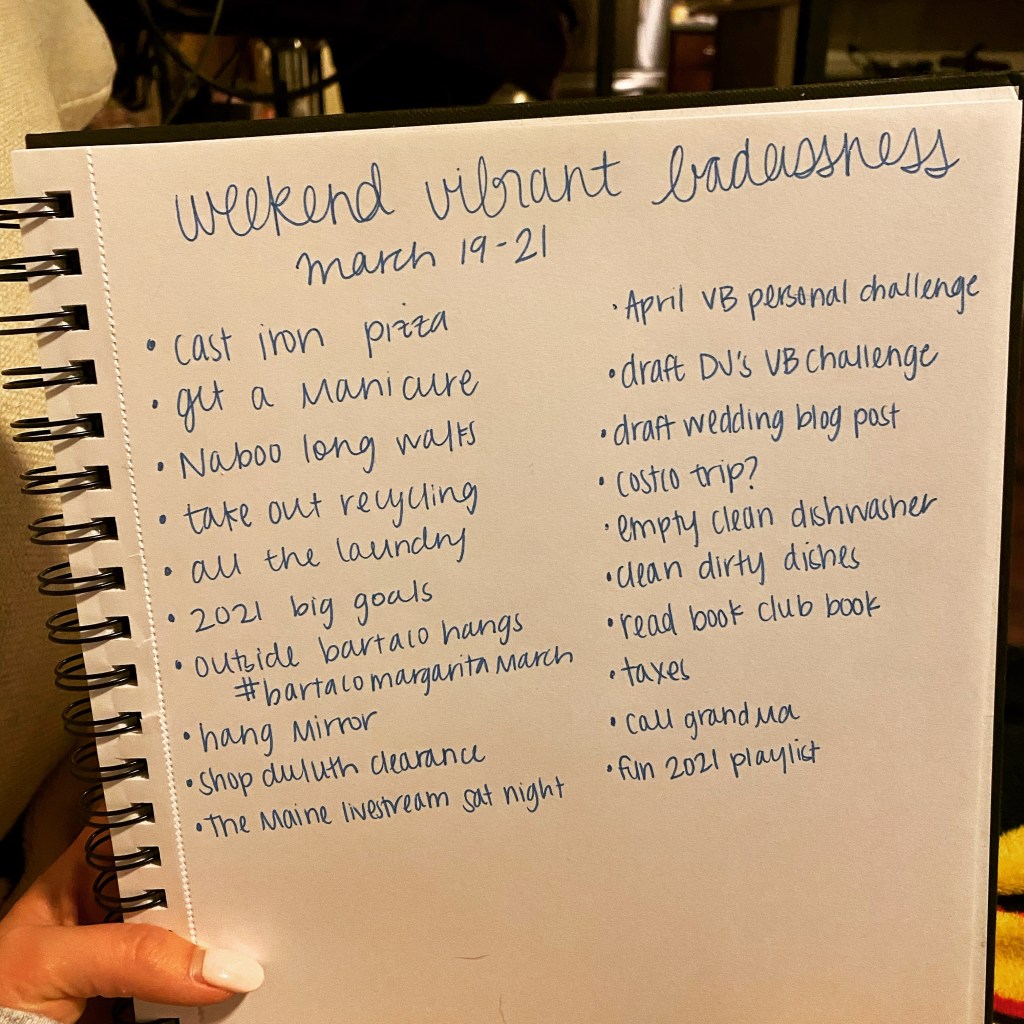 weekend vibrant badassness
march 19-21
• cast iron pizza
• get a manicure
• Naboo long walks
• take out recycling
• all the laundry
• 2021 big goals
• outside bartaco hangs
#bartacomargaritamarch
• hang mirror
• shop duluth clearance
• The Maine livestream sat night
• April VB personal challenge
• draft DJ's VB challenge
• draft wedding blog post
• costco trip?
• empty clean dishwasher
• clean dirty dishes
• read book club book
• taxes
• call grandma
• fun 2021 playlist